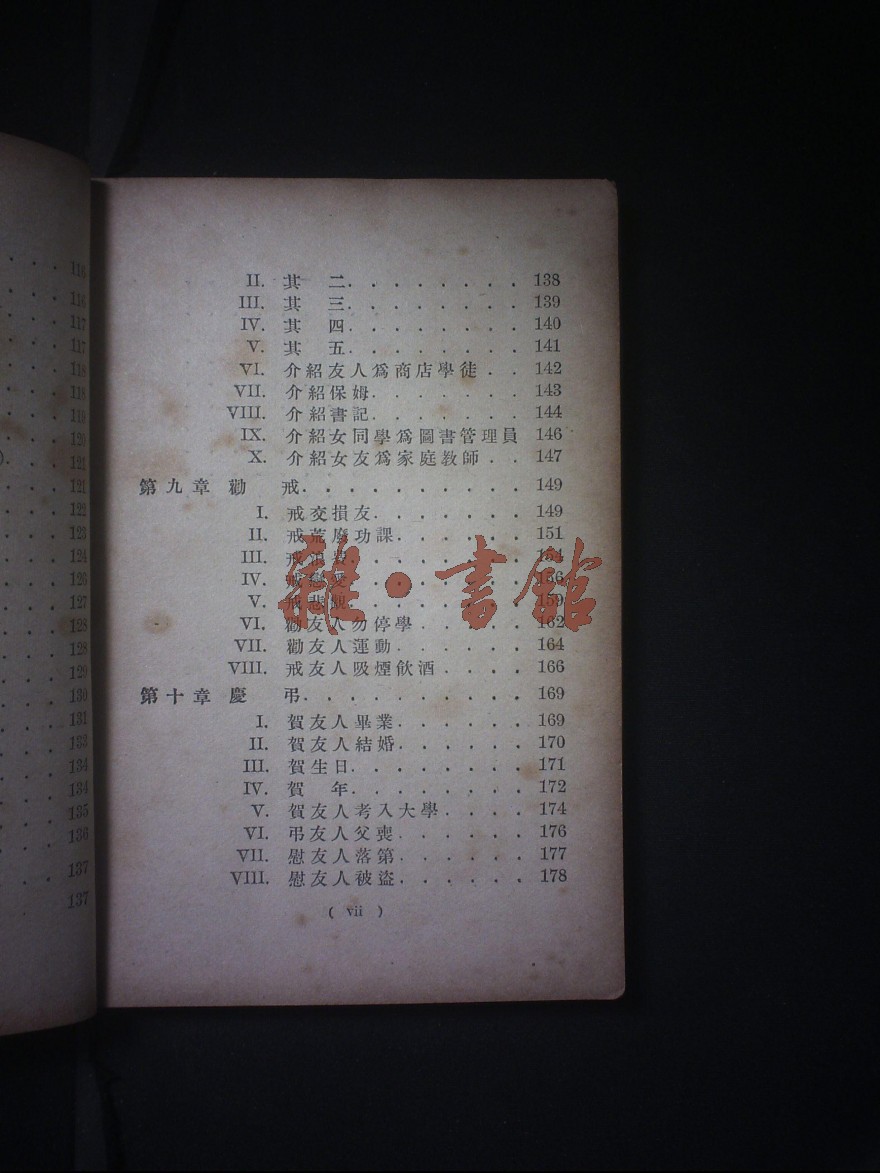 115
116
117
117
118
118
119
120
). 121
121
122
123
124
126
127
128
128
129
130
131
133
134
134
135
136
137
137
II. 其 二. . . . . . . . 138
III. 其 三. . . . . . . . 139
IV. 其 四. . . . . . . . 140
V. 其 五. . . . . . . . 141
VI. 介紹友人爲商店學徒 . . 142
VII. 介紹保姆. . . . . . . 143
VIII. 介紹書記. . . . . . . 144
IX. 介紹女同學爲圖書管理員 146
X. 介紹女友爲家庭教師 . . 147
第九章 勸 戒. . . . . . . . . . 149
I. 戒交損友. . . . . . . 149
II. 戒荒廢功課. . . . . . 151
III. 戒浪費. . . . . . . . 154
IV. 戒戀愛. . . . . . . . 156
V. 戒悲觀. . . . . . . . 159
VI. 勸友人勿停學. . . . . 162
VII. 勸友人運動. . . . . . 164
VIII. 戒友人吸煙飮酒 . . . . 166
第十章 慶 弔. . . . . . . . . . 169
I. 賀友人畢業. . . . . . 169
II. 賀友人結婚. . . . . . 170
III. 賀生日. . . . . . . . 171
IV. 賀 年. . . . . . . . 172
V. 賀友人考入大學. . . . 174
VI. 弔友人父喪. . . . . . 176
VII. 慰友人落第. . . . . . 177
VIII. 慰友人被盜. . . . . . 178
( vii )
雜·書館